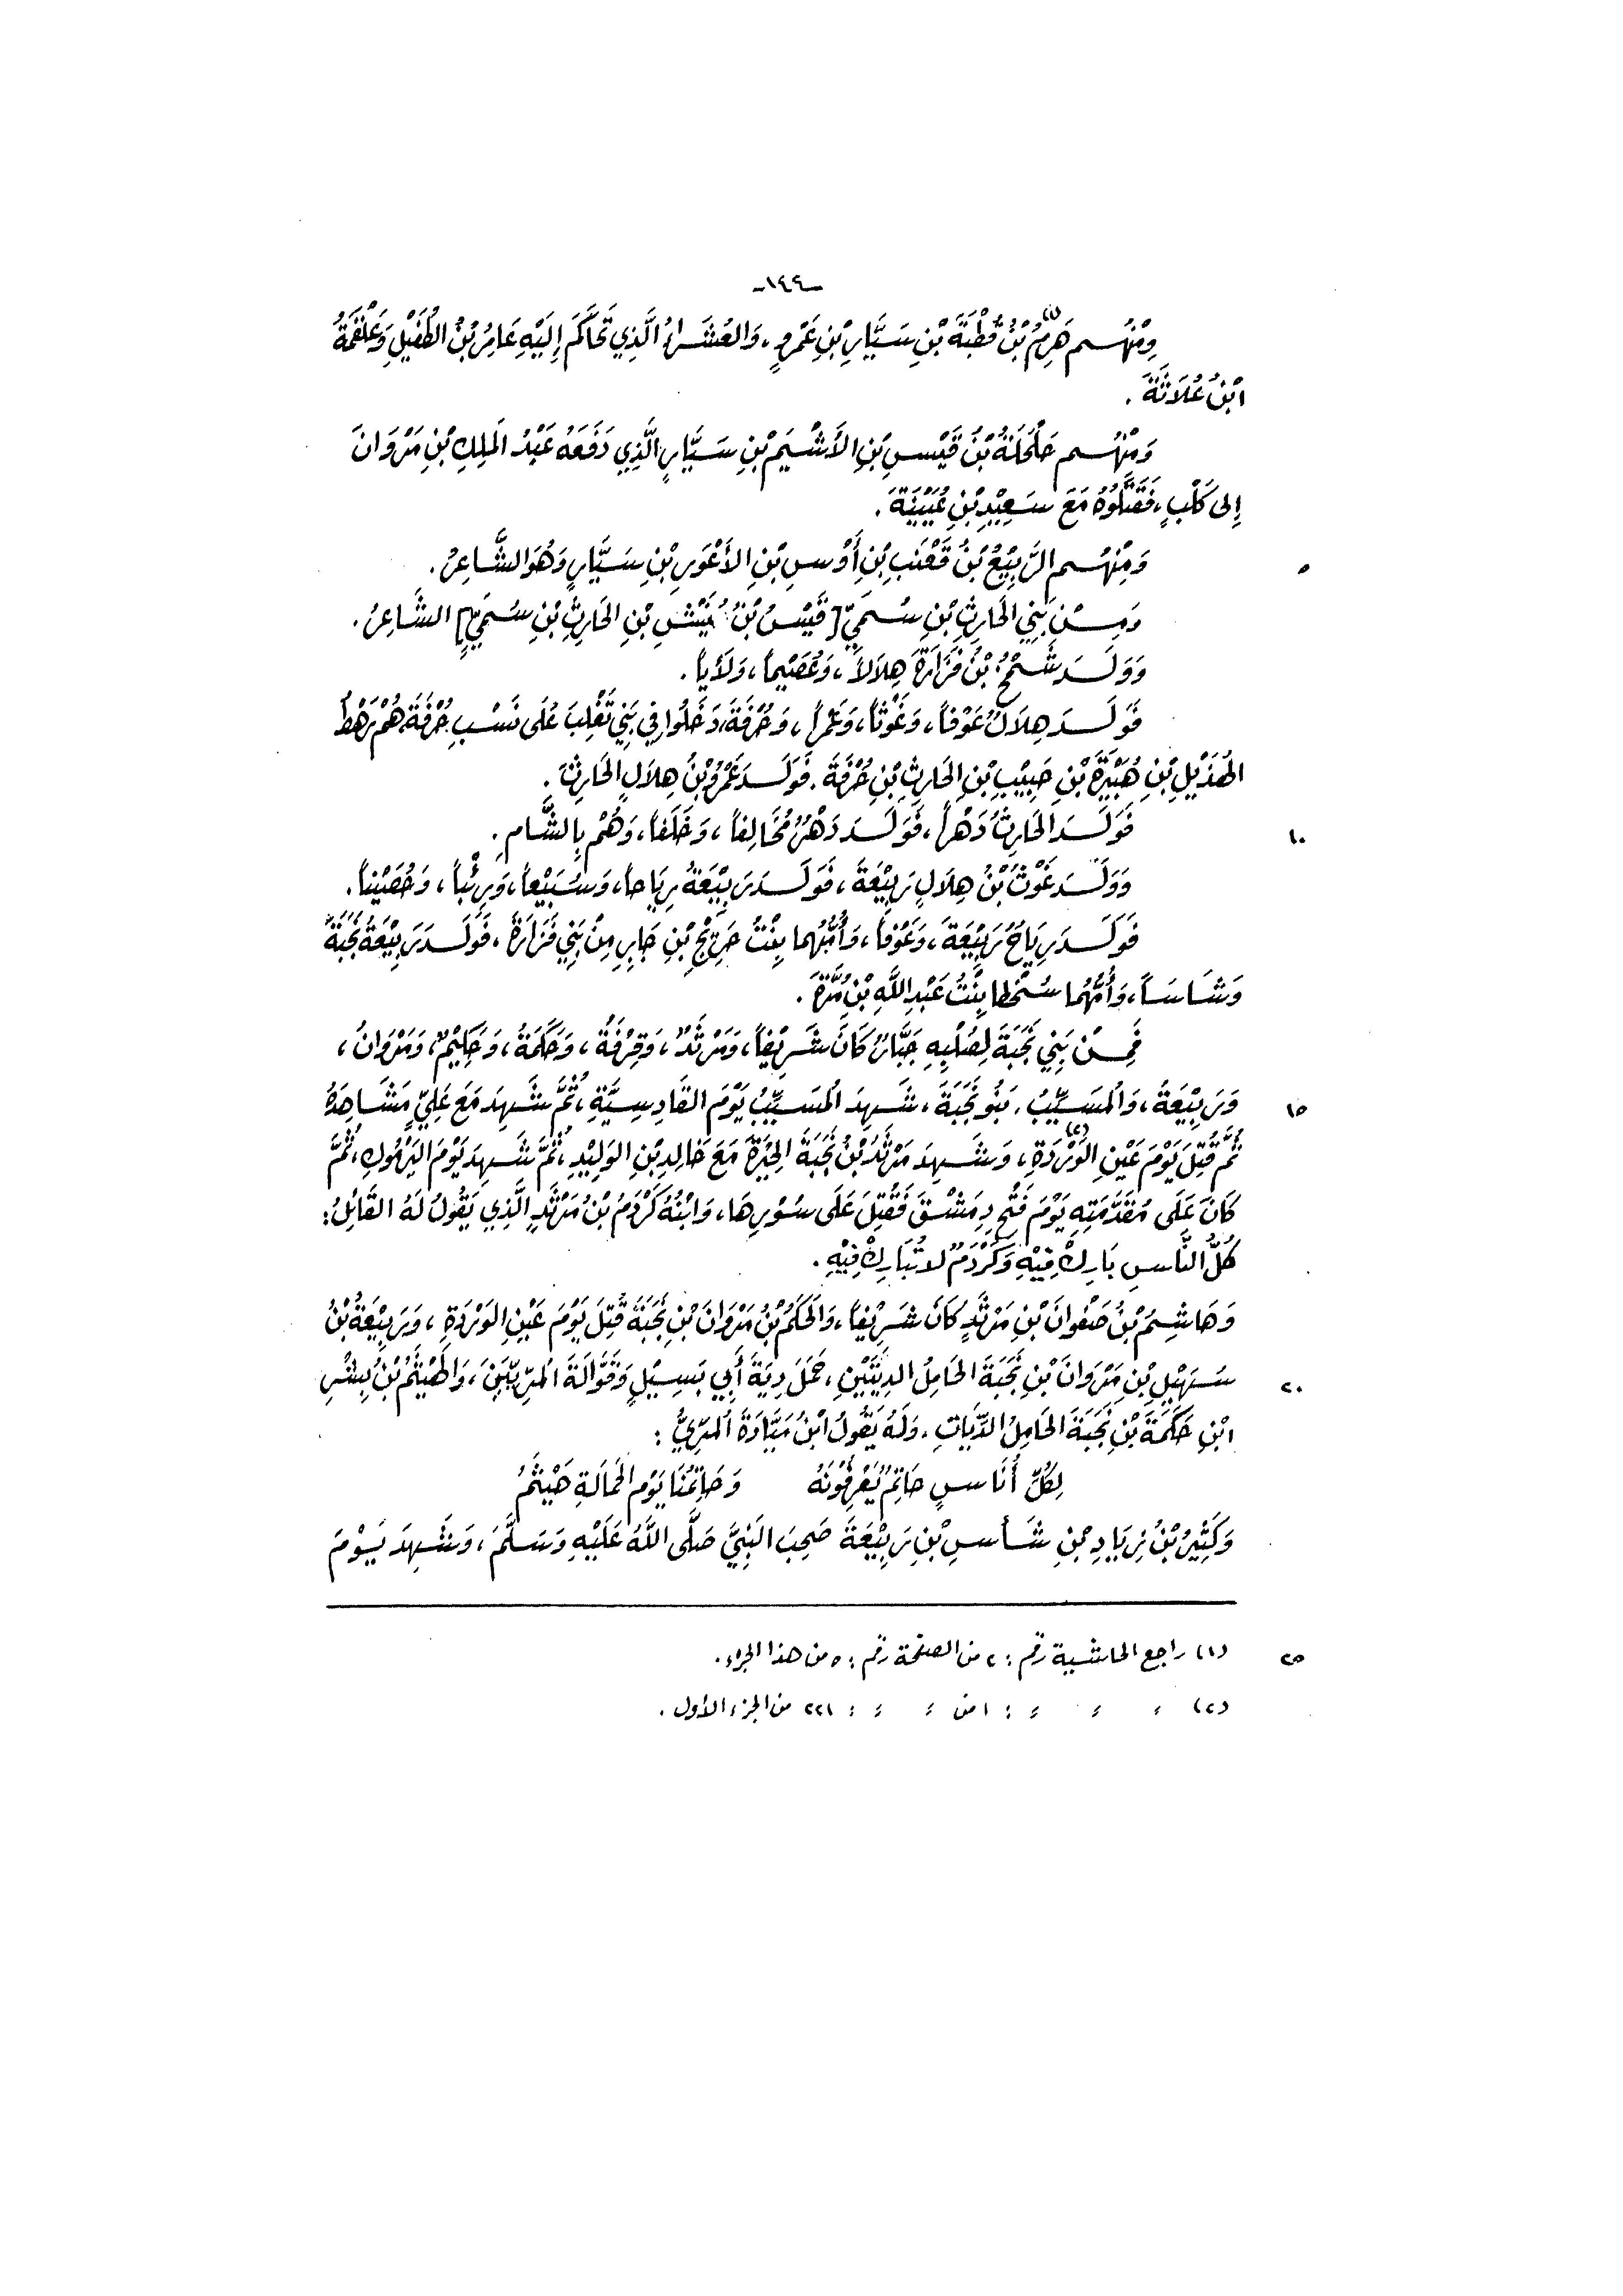 -١٤٤-
وَمِنْهُم هَرِمُ(١) بْنُ قُطْبَةَ بْنِ سَيَّارِ بْنِ عَمْرٍو، وَالعُشَرَاءُ الَّذِي تَحَاكَمَ إِلَيْهِ عَامِرُ بْنُ الطُّفَيْلِ وَعَلْقَمَةُ
ابْنُ عُلَاثَةَ .
وَمِنْهُم حَلْحَلَةُ بْنُ قَيْسِ بْنِ الأَشْيَمِ بْنِ سَيَّارٍ الَّذِي دَفَعَهُ عَبْدُ المَلِكِ بْنِ مَرْوَانَ
إِلى كَلْبٍ، فَقَتَلُوهُ مَعَ سَعِيْدِ بْنِ عُيَيْنَةَ .
٥ وَمِنْهُم الرَّبِيْعُ بْنُ قَعْنَبِ بْنِ أَوْسِ بْنِ الأَعْوَرِ بْنِ سَيَّارٍ وَهُوَ الشَّاعِرُ .
وَمِنْ بَنِي الحَارِثِ بْنِ سُمَيٍّ [ قَيْسُ بْنُ بُنَيْشِ بْنِ الحَارِثِ بْنِ سُمَيٍّ ] الشَّاعِرُ .
وَوَلَدَ شَمْخُ بْنُ فَزَارَةَ هِلَالاً، وَعُصَيْماً، وَلَأْياً .
فَوَلَدَ هِلَالُ عَوْفاً، وَغَوْثاً، وَعَمْراً، وَحُرْفَةَ، دَخَلُوا فِي بَنِي تَغْلِبَ عَلَى نَسْبِ حُرْفَةَ، هُمْ رَهْطُ
الهُذَيْلِ بْنِ هُبَيْرَةَ بْنِ حَبِيْبِ بْنِ الحَارِثِ بْنِ حُرْفَةَ . فَوَلَدَ عَمْرُو بْنُ هِلَالٍ الحَارِثَ .
١٠ فَوَلَدَ الحَارِثُ دَهْراً، فَوَلَدَ دَهْرُ مُخَالِفاً، وَخَلَفاً، وَهُمْ بِالشَّامِ .
وَوَلَدَ غَوْثُ بْنُ هِلَالٍ رَبِيْعَةَ، فَوَلَدَ رَبِيْعَةُ رِيَاحاً، وَسُبَيْعاً، وَرِئْباً، وَحُصَيْناً .
فَوَلَدَ رِيَاحُ رَبِيْعَةَ، وَعَوْفاً، وَأُمُّهُما بِنْتُ حَرِيْجِ بْنِ جَابِرِ مِنْ بَنِي فَزَارَةَ، فَوَلَدَ رَبِيْعَةُ نَجَبَةَ
وَشَاسَاً، وَأُمُّهُما سُخْطا بِنْتُ عَبْدِ اللَّهِ بْنِ مُرَّةَ .
فَمِنْ بَنِي نَجَبَةَ لِصُلْبِهِ جَبَّارٌ كَانَ شَرِيْفاً، وَمَرْثَدٌ، وَقِرْفَةُ، وَحَكَمَةُ، وَحَكِيْمٌ، وَمَرْوَانُ،
١٥ وَرَبِيْعَةُ، وَالْمُسَيِّبُ . بَنُو نَجَبَةَ، شَهِدَ الْمُسَيِّبُ يَوْمَ القَادِسِيَّةِ، ثُمَّ شَهِدَ مَعَ عَلِيٍّ مَشَاهِدَهُ
ثُمَّ قُتِلَ يَوْمَ عَيْنِ الوَرْدَةِ(٢)، وَشَهِدَ مَرْثَدُ بْنُ نَجَبَةَ الحِيْرَةَ مَعَ خَالِدِ بْنِ الوَلِيْدِ، ثُمَّ شَهِدَ يَوْمَ اليَرْمُوكِ، ثُمَّ
كَانَ عَلَى مُقَدَّمَتِهِ يَوْمَ فَتْحِ دِمَشْقَ فَقُتِلَ عَلَى سُوْرِهَا، وَابْنُهُ كَرْدَمُ بْنُ مَرْثَدٍ الَّذِي يَقُولُ لَهُ القَائِلُ:
كُلُّ النَّاسِ بَارِكْ فِيْهِ وَكَرْدَمٌ لا تُبَارِكْ فِيْهِ .
وَهَاشِمُ بْنُ صَفْوَانَ بْنِ مَرْثَدٍ كَانَ شَرِيْفاً، وَالحَكَمُ بْنُ مَرْوَانَ بْنِ نَجَبَةَ قُتِلَ يَوْمَ عَيْنِ الوَرْدَةِ، وَرَبِيْعَةُ بْنُ
٢٠ سَهْيْلِ بْنِ مَرْوَانَ بْنِ نَجَبَةَ الحَامِلُ الدِيَّتَيْنِ، حَمَلَ دِيَةَ أَبِي بَسِيْلٍ وَقَوَّالَةَ الْمُرِّيَّيْنَ، وَالهَيْثَمُ بْنُ بِشْرِ
ابْنِ حَكَمَةَ بْنِ نَجَبَةَ الحَامِلُ الدِّيَاتِ . وَلَهُ يَقُولُ ابْنُ مَيَّادَةَ الْمُرِّيُّ :
لِكُلِّ أُنَاسٍ حَاتِمٌ يَعْرِفُونَهُ وَحَاتِمُنَا يَوْمَ الحَمَالَةِ هَيْثَمُ
وَكَثِيْرُ بْنُ زِيَادِ بْنِ شَأْسِ بْنِ رَبِيْعَةَ صَحِبَ النَّبِيَّ صَلَّى اللَّهُ عَلَيْهِ وَسَلَّمَ، وَشَهِدَ يَوْمَ
٢٥ (١) راجع الحاشية رقم : ٢ من الصفحة رقم : ٥ من هذا الجزء .
(٢) ؛ ؛ ؛ : ١ من ؛ ؛ : ٢٢١ من الجزء الأول .